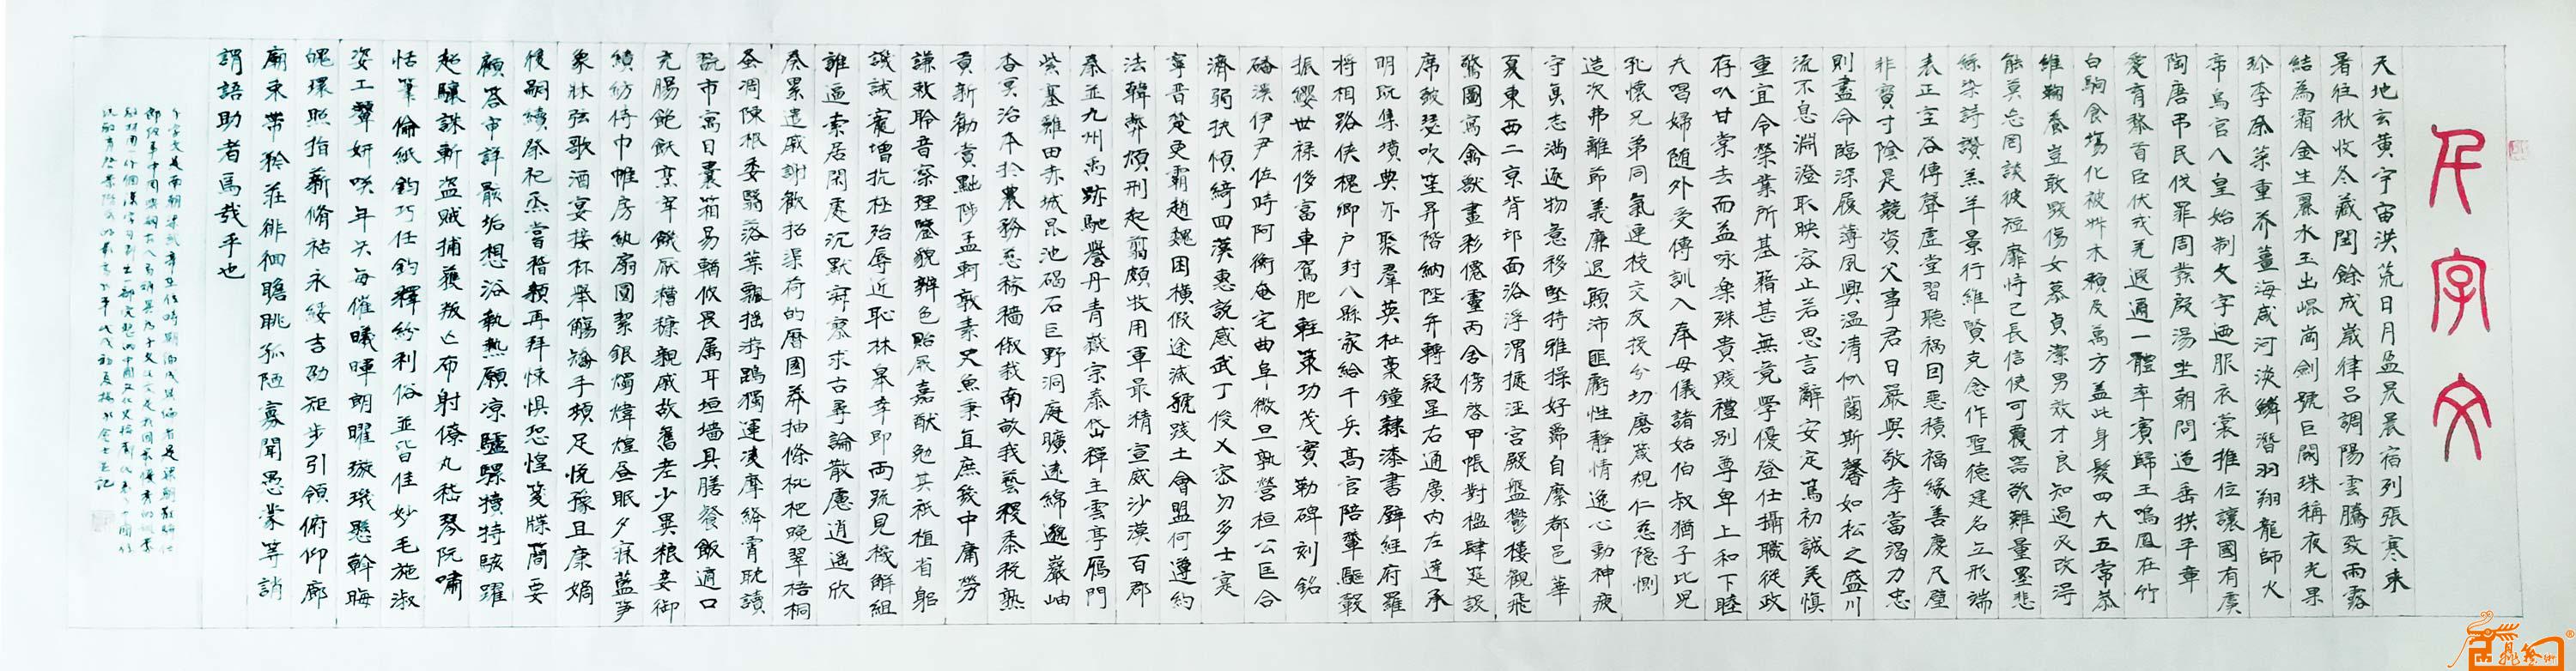 千字文
天地玄黃宇宙洪荒日月盈昃辰宿列張寒來
暑往秋收冬藏閏餘成歲律呂調陽雲騰致雨露
結為霜金生麗水玉出崐崗劍號巨闕珠稱夜光果
珍李柰菜重芥薑海咸河淡鱗潛羽翔龍師火
帝鳥官人皇始制文字迺服衣裳推位讓國有虞
陶唐弔民伐罪周發殷湯坐朝問道垂拱平章
愛育黎首臣伏戎羌遐邇一體率賓歸王鳴鳳在竹
白駒食場化被草木賴及萬方蓋此身髮四大五常恭
維鞠養豈敢毀傷女慕貞潔男效才良知過必改得
能莫忘罔談彼短靡恃己長信使可覆器欲難量墨悲
絲染詩讚羔羊景行維賢克念作聖德建名立形端
表正空谷傳聲虛堂習聽禍因惡積福緣善慶尺璧
非寶寸陰是競資父事君曰嚴與敬孝當竭力忠
則盡命臨深履薄夙興溫凊似蘭斯馨如松之盛川
流不息淵澄取映容止若思言辭安定篤初誠美慎
重宜令榮業所基籍甚無竟學優登仕攝職從政
存以甘棠去而益詠樂殊貴賤禮別尊卑上和下睦
夫唱婦隨外受傅訓入奉母儀諸姑伯叔猶子比兒
孔懷兄弟同氣連枝交友投分切磨箴規仁慈隱惻
造次弗離節義廉退顛沛匪虧性靜情逸心動神疲
守真志滿逐物意移堅持雅操好爵自縻都邑華
夏東西二京背邙面洛浮渭據涇宮殿盤鬱樓觀飛
驚圖寫禽獸畫彩僊靈丙舍傍啓甲帳對楹肆筵設
席鼓瑟吹笙昇階納陛弁轉疑星右通廣內左達承
明既集墳典亦聚羣英杜稾鐘隸漆書壁經府羅
將相路俠槐卿户封八縣家給千兵高官陪輦驅轂
振纓世祿侈富車駕肥輕策功茂實勒碑刻銘
磻溪伊尹佐時阿衡奄宅曲阜微旦孰營桓公匡合
濟弱扶傾綺回漢惠說感武丁俊乂密勿多士寔
寧晉楚更霸趙魏困橫假途滅虢踐土會盟何遵約
法韓弊煩刑起翦頗牧用軍最精宣威沙漠百郡
秦並九州禹跡馳譽丹青嶽宗泰岱禪主雲亭雁門
紫塞雞田赤城昆池碣石巨野洞庭曠遠綿邈巖岫
杳冥治本於農務茲稼穡俶載南畝我藝稷黍稅熟
貢新勸賞黜陟孟軻敦素史魚秉直庶幾中庸勞
謙敕聆音察理鑒貌辨色貽厥嘉猷勉其祗植省躬
譏誡寵增抗極殆辱近恥林皋幸即兩疏見機解組
誰逼索居閑處沉默寂寥求古尋論散慮逍遙欣
奏累遣慼謝歡招渠荷的曆園莽抽條枇杷晚翠梧桐
蚤凋陳根委翳落葉飄搖游鵾獨運凌摩絳霄耽讀
翫市寓目囊箱易輶攸畏属耳垣墻具膳餐飯適口
充腸飽飫烹宰饑厭糟糠親戚故舊老少異粮妾御
績紡侍巾帷房紈扇圓絜銀燭煒煌昼眠夕寐藍笋
象牀弦歌酒宴接杯舉觴矯手頓足悅豫且康嫡
後嗣續祭祀烝嘗稽顙再拜悚懼恐惶箋牒簡要
顧答审詳骸垢想浴執熱願凉驢騾犢特駭躍
超驤誅斬盜賊捕獲叛亡布射僚丸嵇琴阮嘯
恬筆倫紙鈞巧任釣釋紛利俗並皆佳妙毛施淑
姿工顰妍咲年矢每催曦暉朗曜璇璣懸斡晦
魄環照指薪脩祜永綏吉劭矩步引領俯仰廊
廟束帶矜莊徘徊瞻眺孤陋寡聞愚蒙等誚
謂語助者焉哉乎也